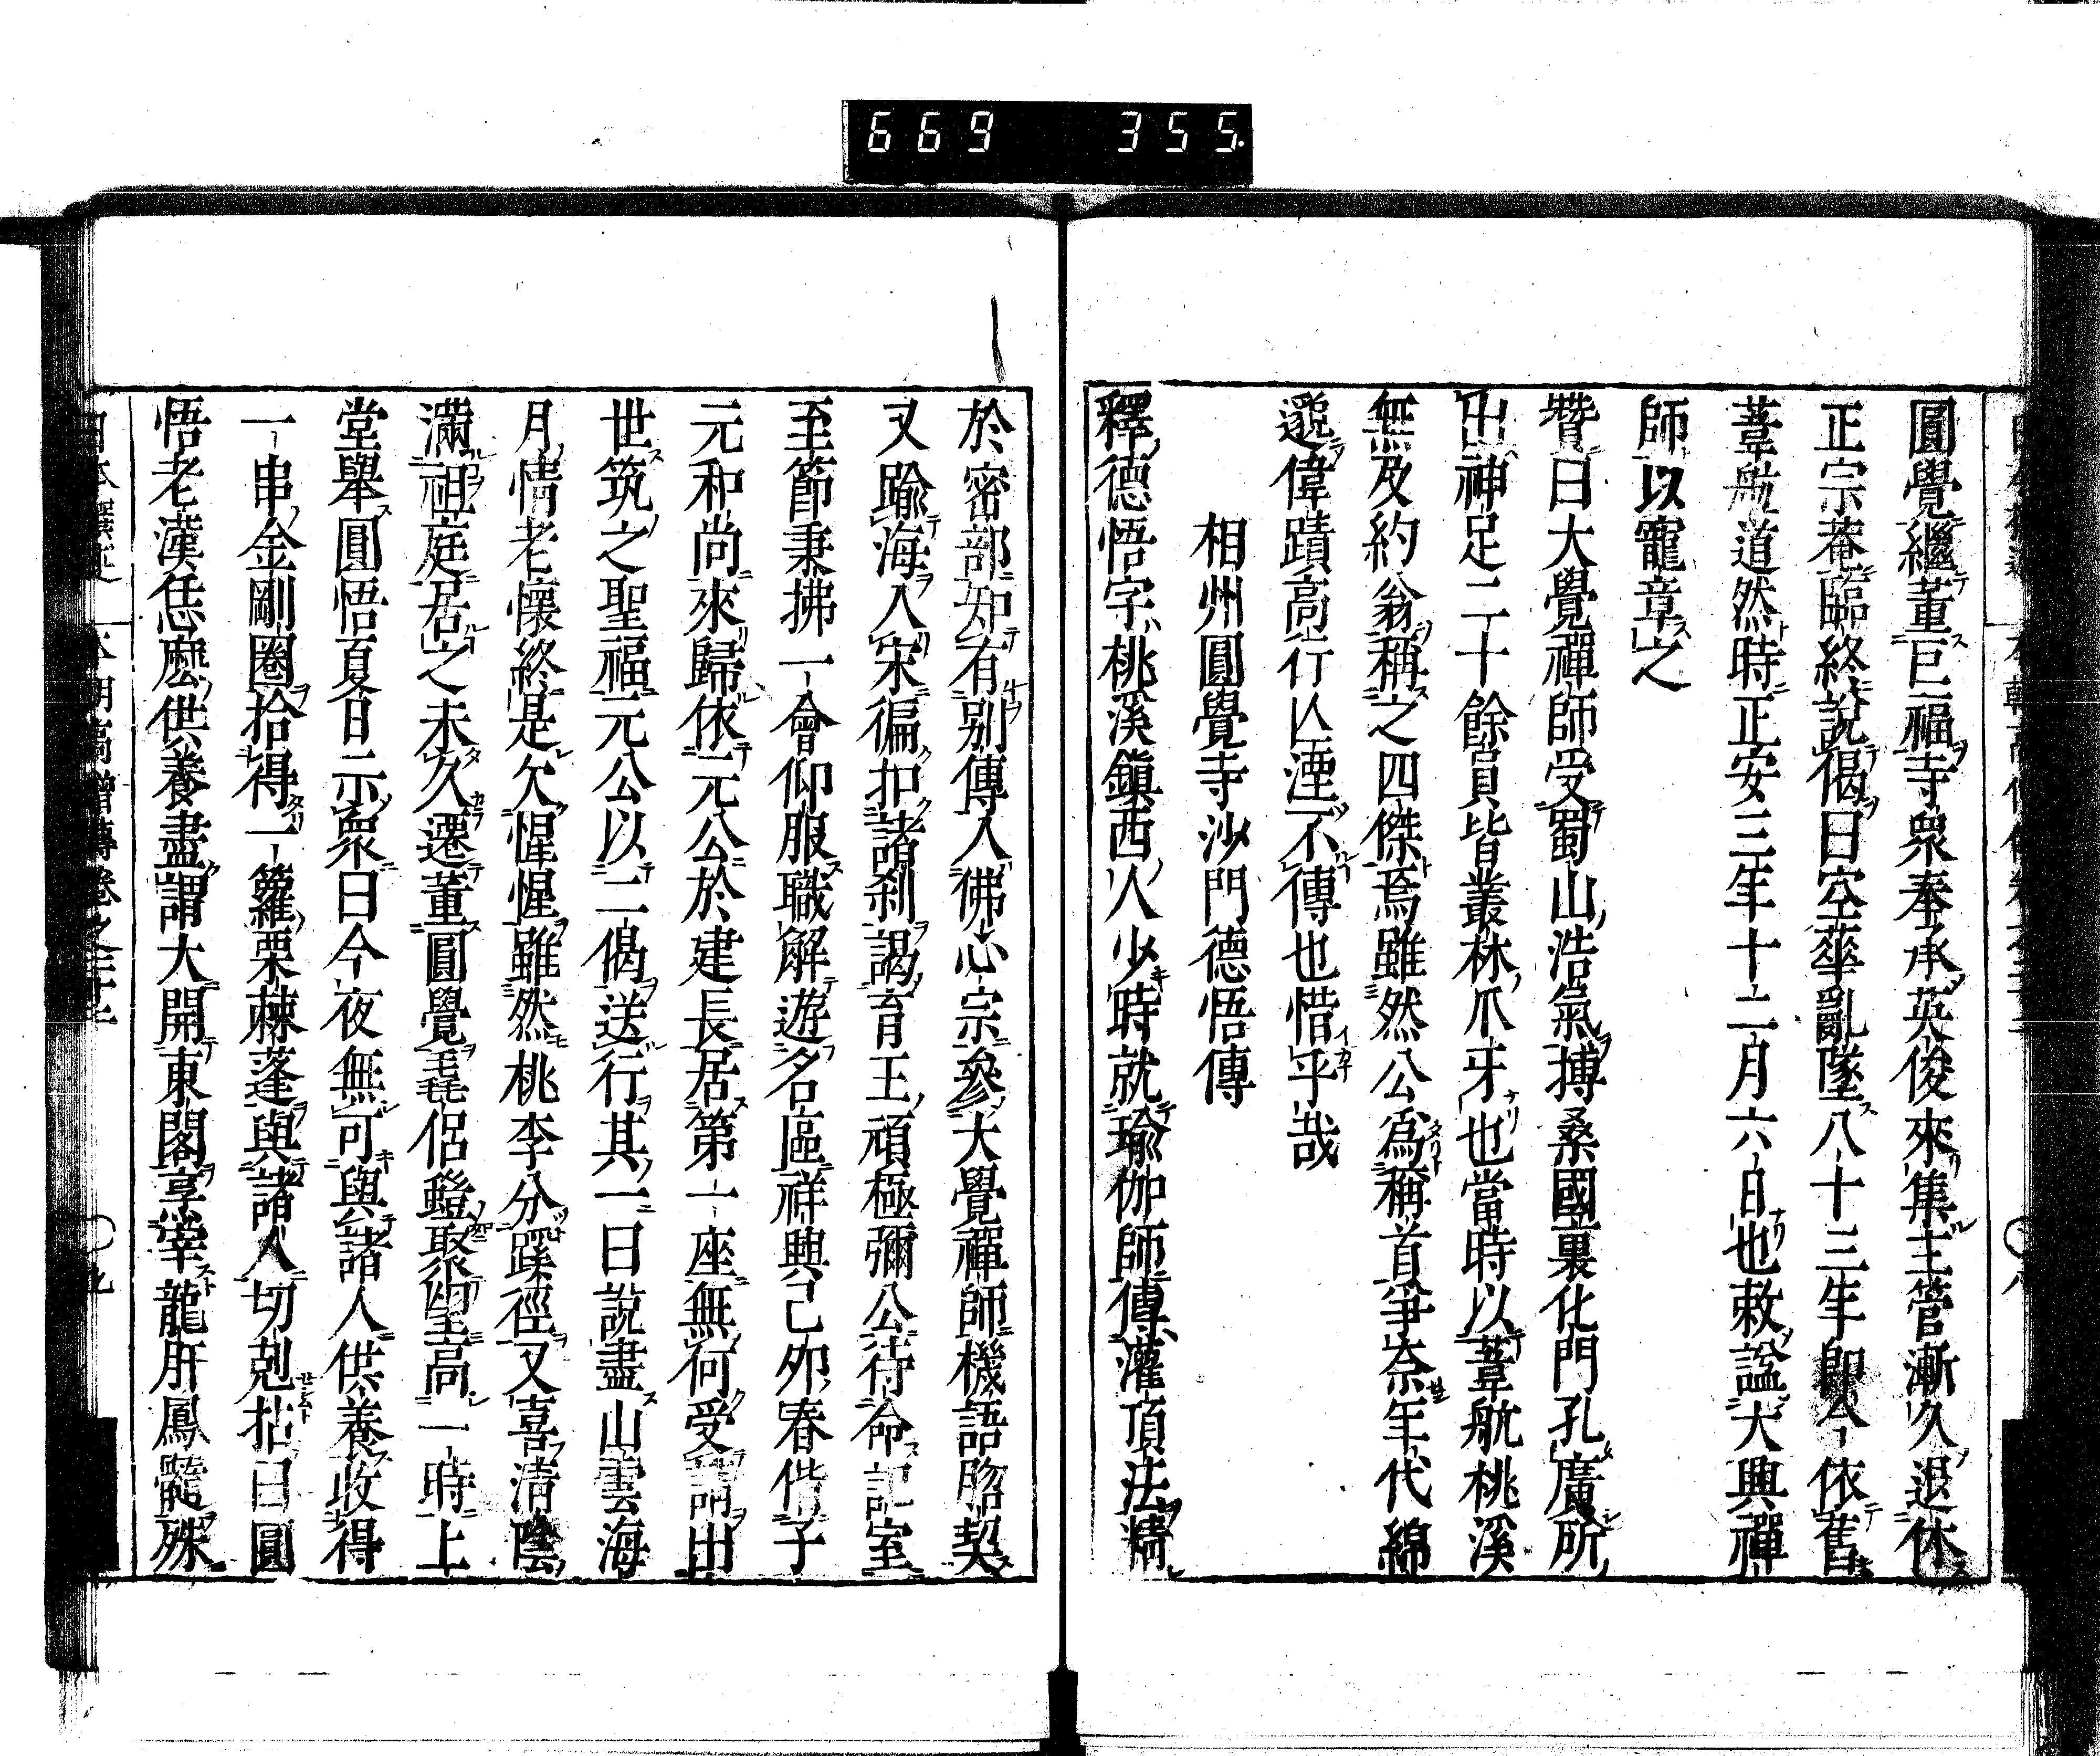 669 355
圓覺繼董巨福寺衆奉承英俊來集主管漸久退休
正宗菴臨終說偈曰空華亂墜八十三年卽今依舊
葦航道然時正安三年十二月六日也敕謚大興禪
師以寵章之
贊曰大覺禪師受蜀山浩氣搏桑國裏化門孔廣所
出神足二十餘員皆叢林爪牙也當時以葦航桃溪
無及約翁稱之四傑焉雖然公爲稱首爭奈年代綿
邈偉蹟高行亾湮不傳也惜乎哉
相州圓覺寺沙門德悟傳
釋德悟字桃溪鎭西人少時就瑜伽師傳灌頂法精
於密部知有別傳入佛心宗參大覺禪師機語䏭契
又踰海入宋徧扣諸刹謁育王頑極彌公待命記室
至節秉拂一會仰服職解遊名區祥興己夘春偕子
元和尚來歸依元公於建長居第一座無何受請出
世筑之聖福元公以二偈送行其一曰說盡山雲海
月情老懷終是欠惺惺雖然桃李分蹊徑又喜淸陰
滿祖庭居之未久遷董圓覺毳侶蹬聚望高一時上
堂舉圓悟夏日示衆曰今夜無可與諸人供養收得
一串金剛圈拾得一籮栗棘蓬與諸人切剋拈曰圓
悟老漢恁麼供養盡謂大開東閣烹宰龍肝鳳髓殊